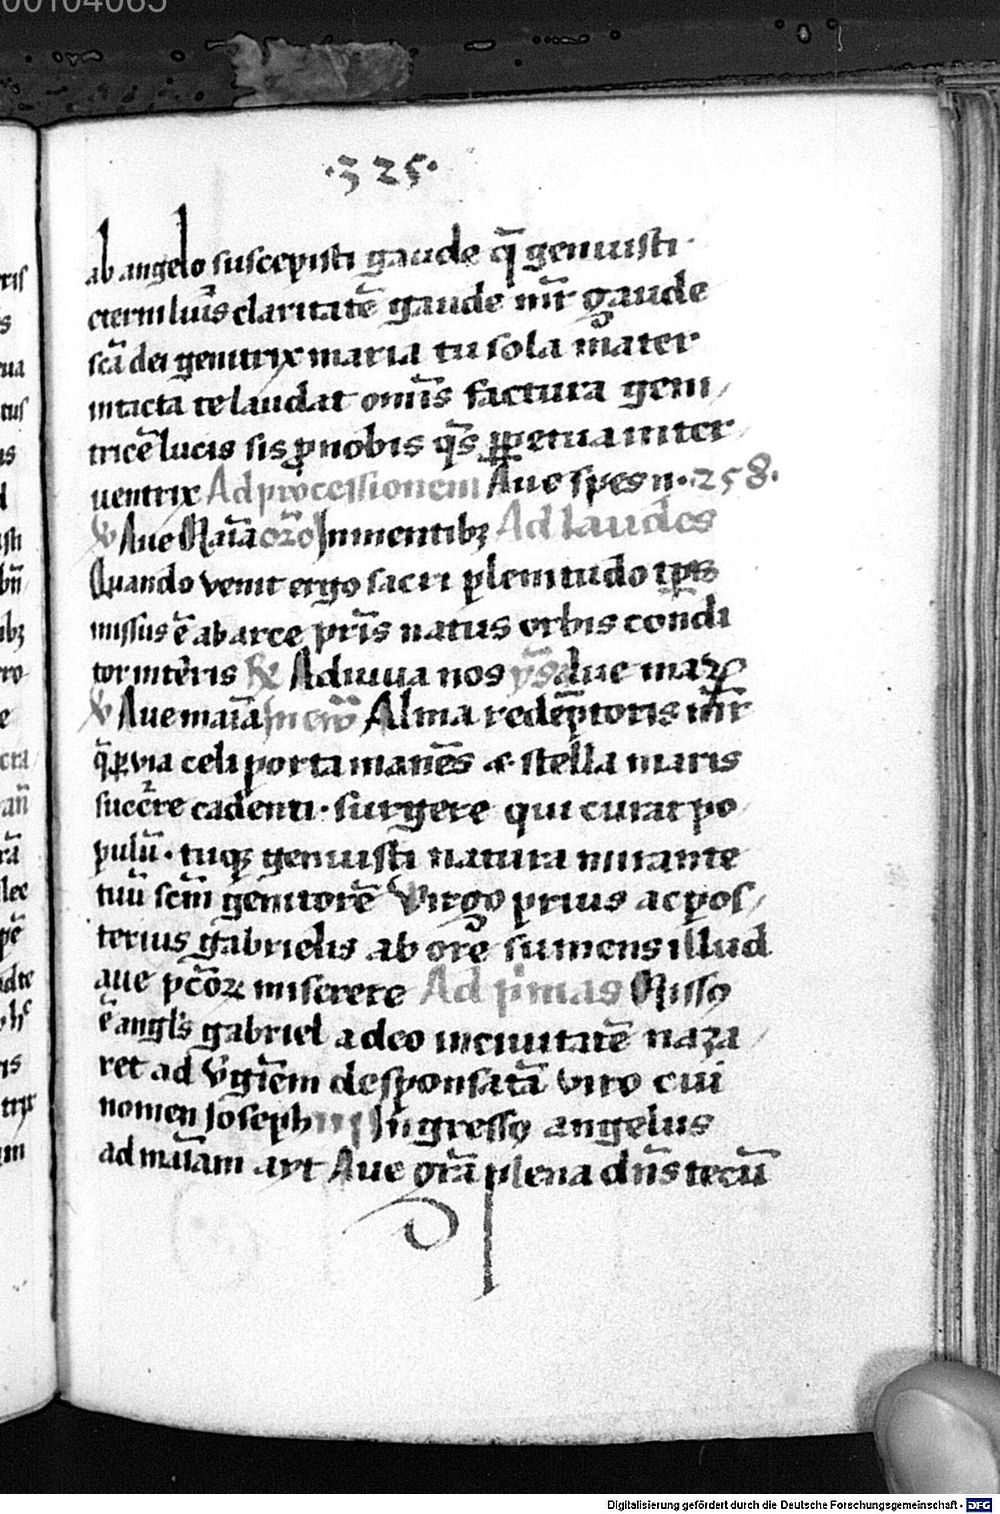 00104065
·325·
ab angelo suscepisti gaude q̄ genuisti
eterni luīs claritatē gaude mr̄ gaude
scā dei genitrix maria tu sola māter
intacta te laudat om̄is factura geni
tricē lucis sis ꝓ nobis qs̄ ꝑpetua inter
uentrix Ad processionem Aue spes n· 258·
℣ Aue Maīa orō Imminentibꝫ Ad laudes
Quando venit ergo sacri plenitudo tꝑis
missus ē ab arce prīs natus orbis condi
tor int̄eris ℟ Adiuua nos ys̄ Aue maꝝ
℣ Aue maīa In eu͞o Alma redēptoris mr̄
q̄ ꝑuia celi porta manēs et stella maris
succ̄re cadenti· surgere qui curat po
pulū· tuqꝫ genuisti natura mirante
tuū scm̄ genitorē Virgo prius ac pos
terius gabrielis ab ore sumens illud
aue pc̄oꝝ miserere Ad p̄mas Missꝯ
ē angl̄s gabriel a deo in ciuitatē naza
ret ad v̄gīem desponsatā viro cui
nomen Joseph Ingressꝯ angelus
ad maīam ayt Aue grā plena dn̄s tecū
Digitalisierung gefördert durch die Deutsche Forschungsgemeinschaft - DFG